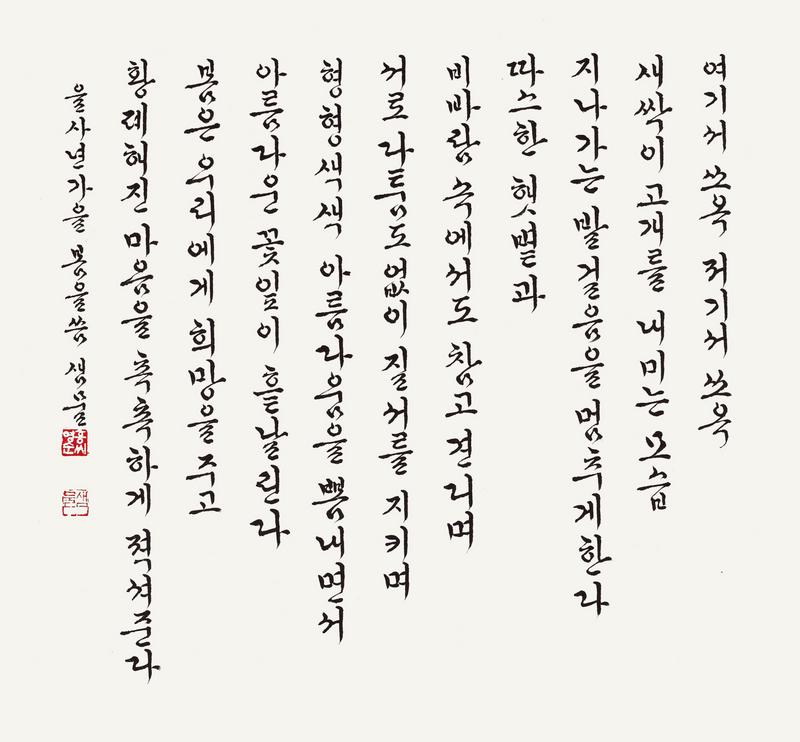 여기서 쏘옥 저기서 쏘옥
새싹이 고개를 내미는 모습
지나가는 발걸음을 멈추게 한다
따스한 햇볕과
비바람 속에서도 참고 견디며
서로 다툼도 없이 질서를 지키며
형형색색 아름다움을 뽐내면서
아름다운 꽃잎이 흩날린다
봄은 우리에게 희망을 주고
황폐해진 마음을 촉촉하게 적셔준다
을사년 가을 봄을 씀 샘물